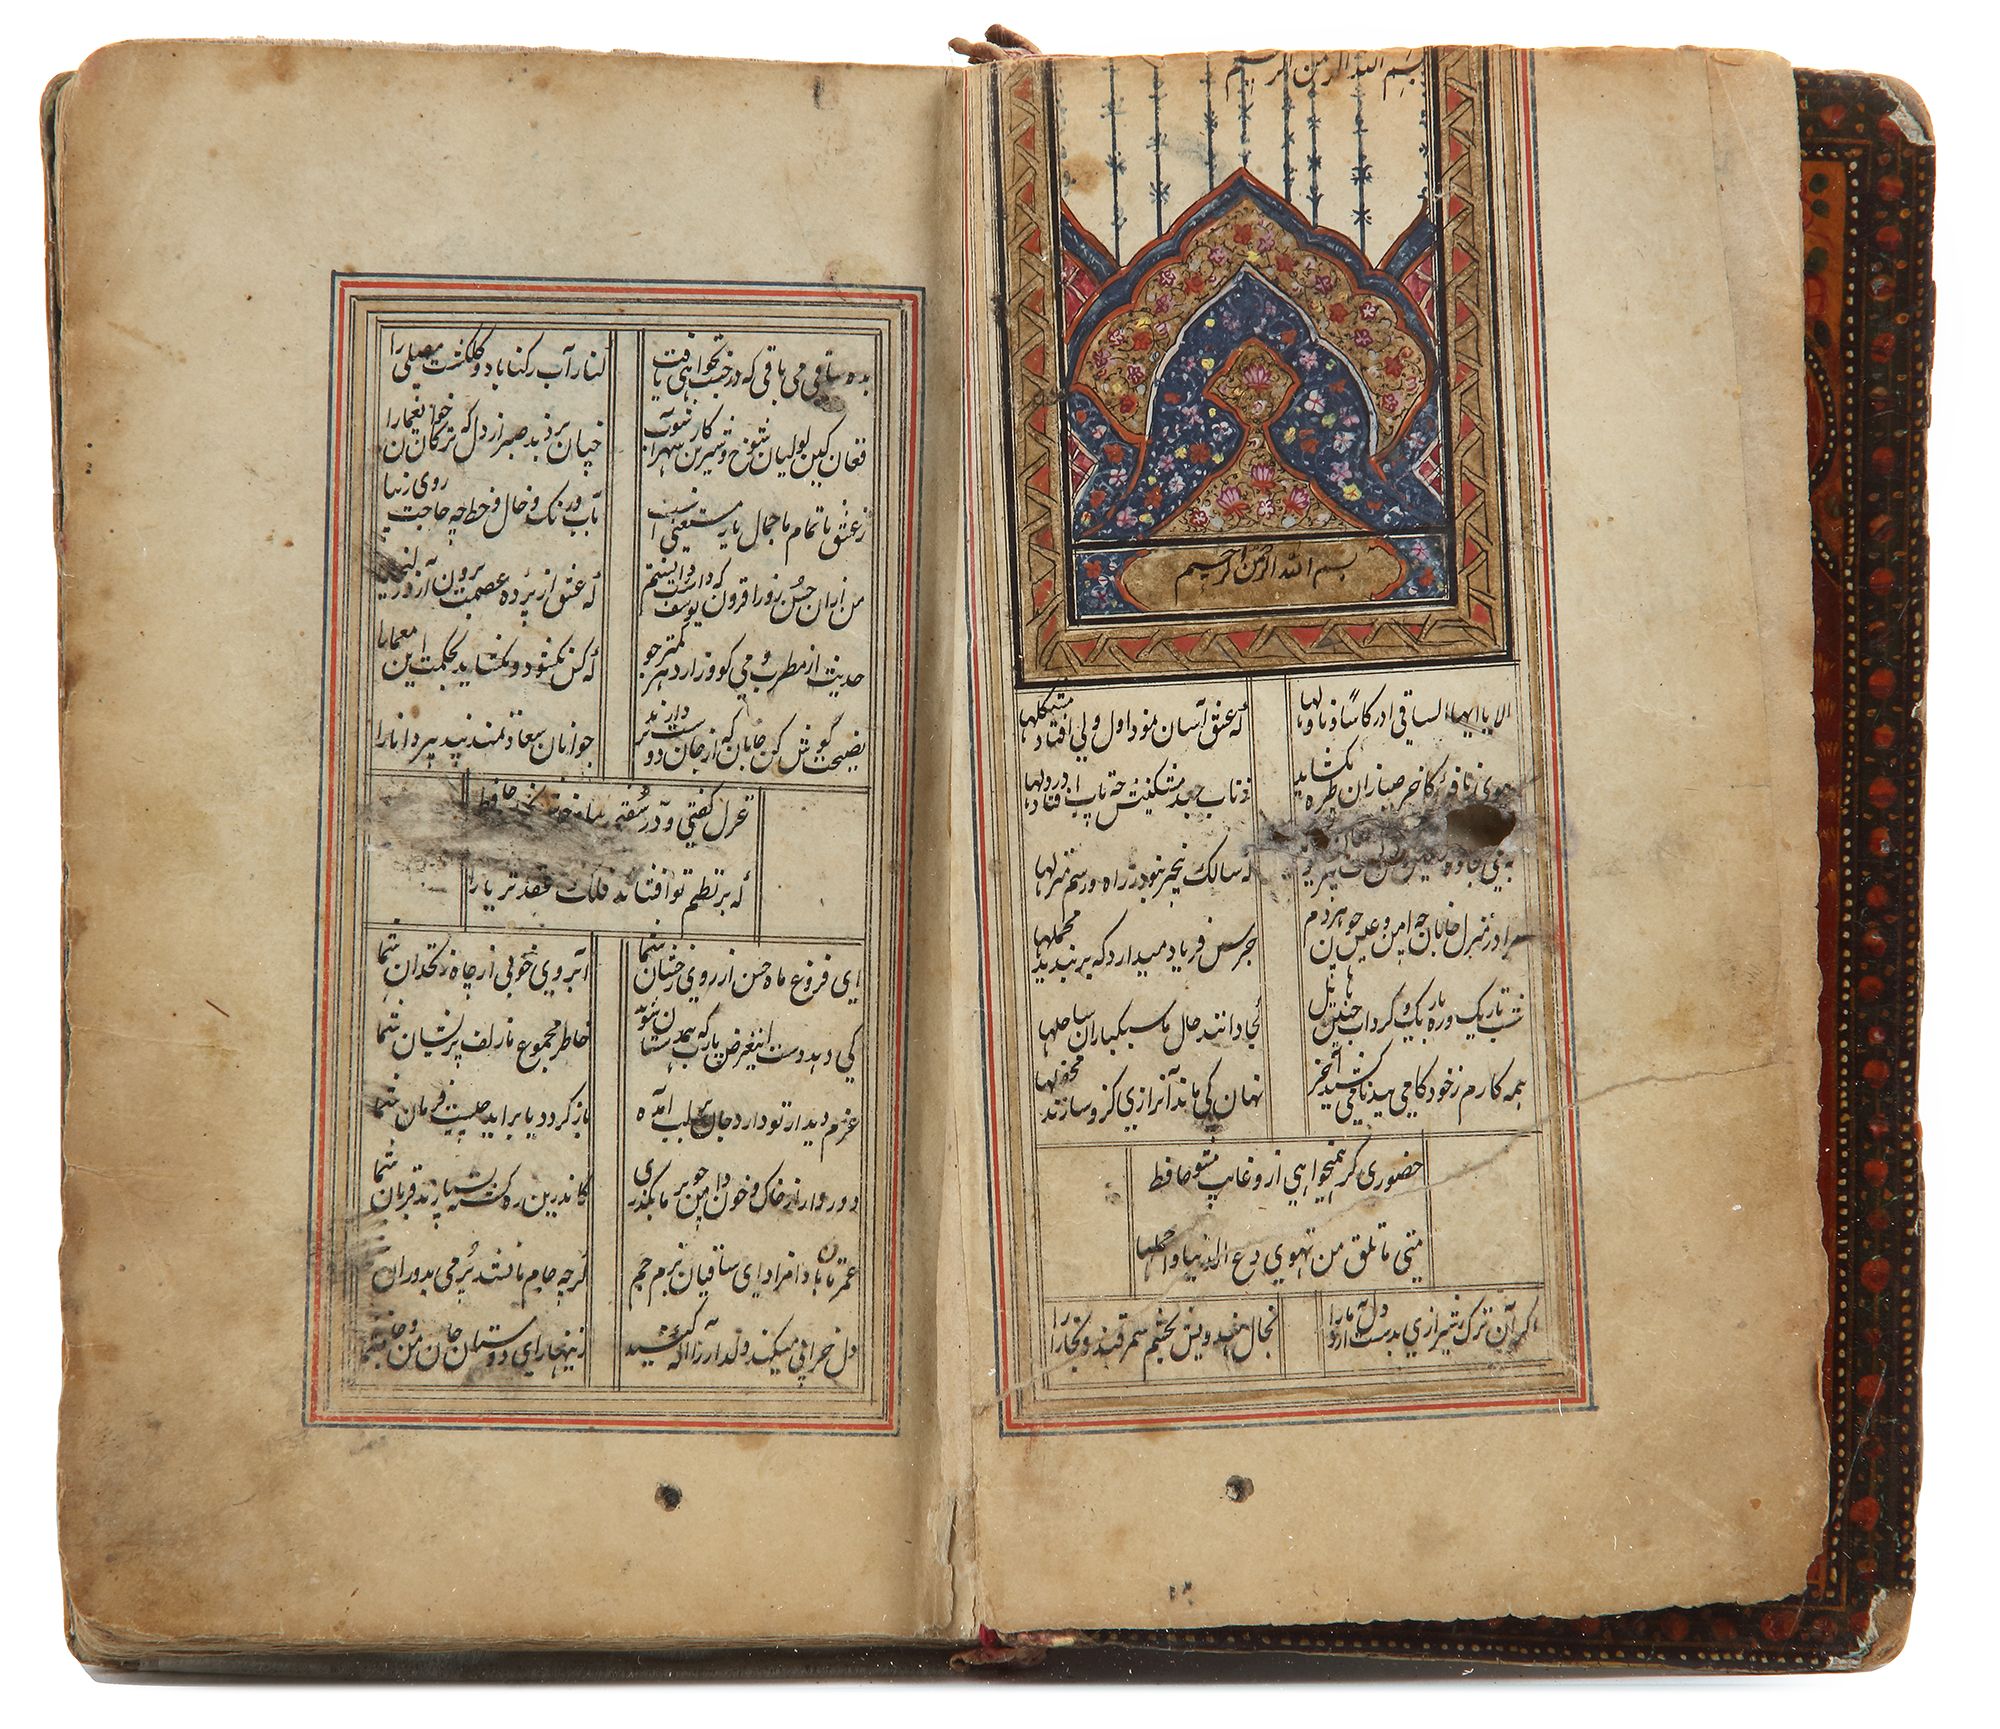 بسم الله الرحمن الرحيم
بسم الله الرحمن الرحيم
الا يا ايها الساقى ادر كاسا و ناولها که عشق آسان نمود اول ولى افتاد مشکلها
ببوى نافۀ کاخر صبا زان طره بگشايد ز تاب جعد مشکينش چه تاب افتاد در دلها
که سالک بيخبر نبود ز راه و رسم منزلها
مرا در منزل جانان چه امن و عيش چون هردم جرس فرياد ميدارد که بر بنديد محملها
شب تاريک و ره باريک و گرداب چنين هايل کجا دانند حال ما سبکباران ساحلها
همه کارم ز خودکامى ببدنامى کشيد آخر نهان کى ماند آن رازى کزو سازند محفلها
حضورى گر هميخواهى ازو غايب مشو حافظ
متى ما تلق من تهوى دع الدنيا و اهملها
اگر آن ترک شيرازى بدست آرد دل ما را بخال هندويش بخشم سمرقند و بخارا را
بده ساقى مى باقى که در جنت نخواهى يافت کنار آب رکناباد و گلگشت مصلى را
فغان کين لوليان شوخ و شيرين کار شهرآشوب چنان بردند صبر از دل که ترکان خوان يغما را
ز عشق ناتمام ما جمال يار مستغنى است بآب و رنگ و خال و خط چه حاجت روى زيبا
من از آن حسن روز افزون که يوسف داشت دانستم که عشق از پرده عصمت برون آرد زليخا
حديث از مطرب و مى گو و راز دهر کمتر جو که کس نگشود و نگشايد بحکمت اين معما را
نصيحت گوش کن جانان که از جان دوست تر دارند جوانان سعادتمند پند پير دانا را
غزل گفتى و در سفتى حافظ
که بر نظم تو افشاند فلک عقد ثريا را
اى فروغ ماه حسن از روى رخشان شما آبروى خوبى از چاه زنخدان شما
کى دهد دست اين غرض يارب که همدستان شوند خاطر مجموع ما زلف پريشان شما
عزم ديدار تو دارد جان بر لب آمده باز گردد يا برآيد چيست فرمان شما
دور دار از خاک و خون دامن چو بر ما بگذرى کاندرين ره کشته بسيارند قربان شما
عمرتان باد افزاد اى ساقيان بزم جم گرچه جام ما نشد پر مى بدوران
دل خرابى ميکند دلدار را آگه کنيد زينهار اى دوستان جان من و جان شما